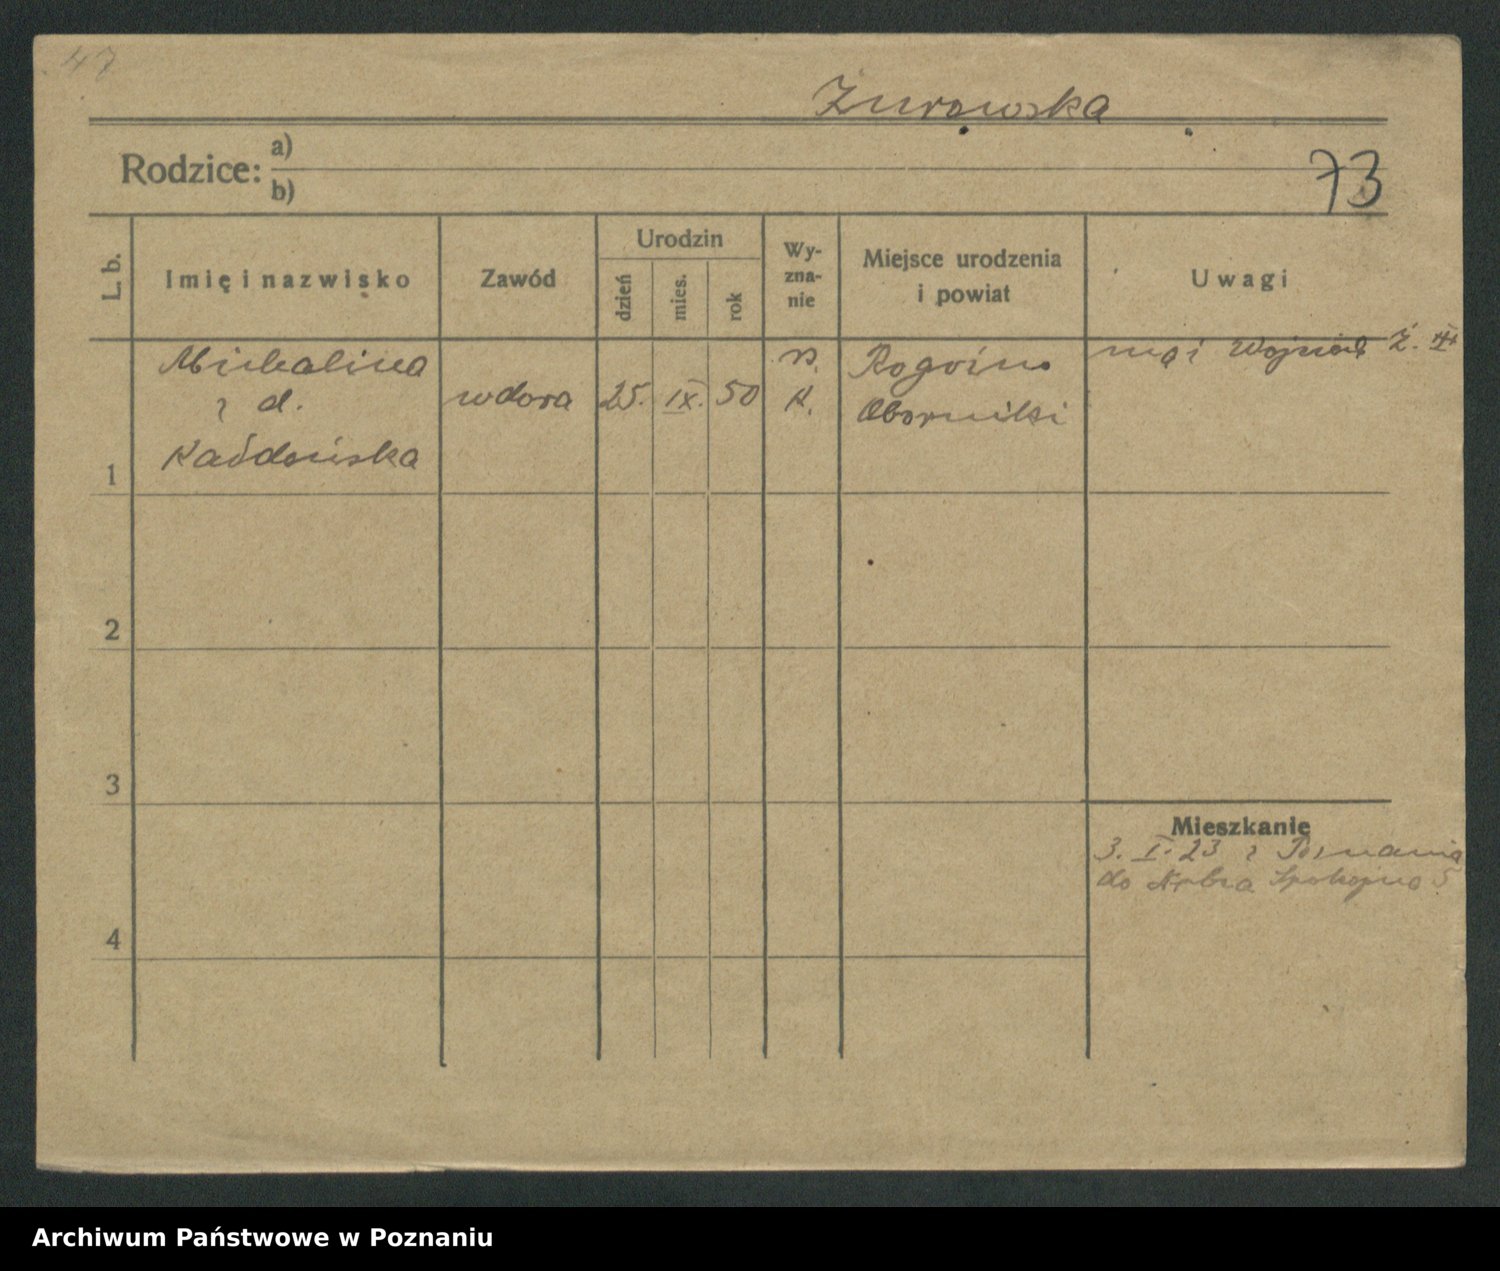 47
Żurowska
Rodzice: a)
b)
73
L. b.
Imię i nazwisko
Zawód
Urodzin
dzień
mies.
rok
Wy-
zna-
nie
Miejsce urodzenia
i powiat
Uwagi
Michalina
z d.
wdowa
25. IX. 50
R.
K.
Rogoźno
Oborniki
mąż Wojciech Ż.
1
2
3
4
Mieszkanie
3. I. 23 z Poznania
do Spokojna 5
Archiwum Państwowe w Poznaniu